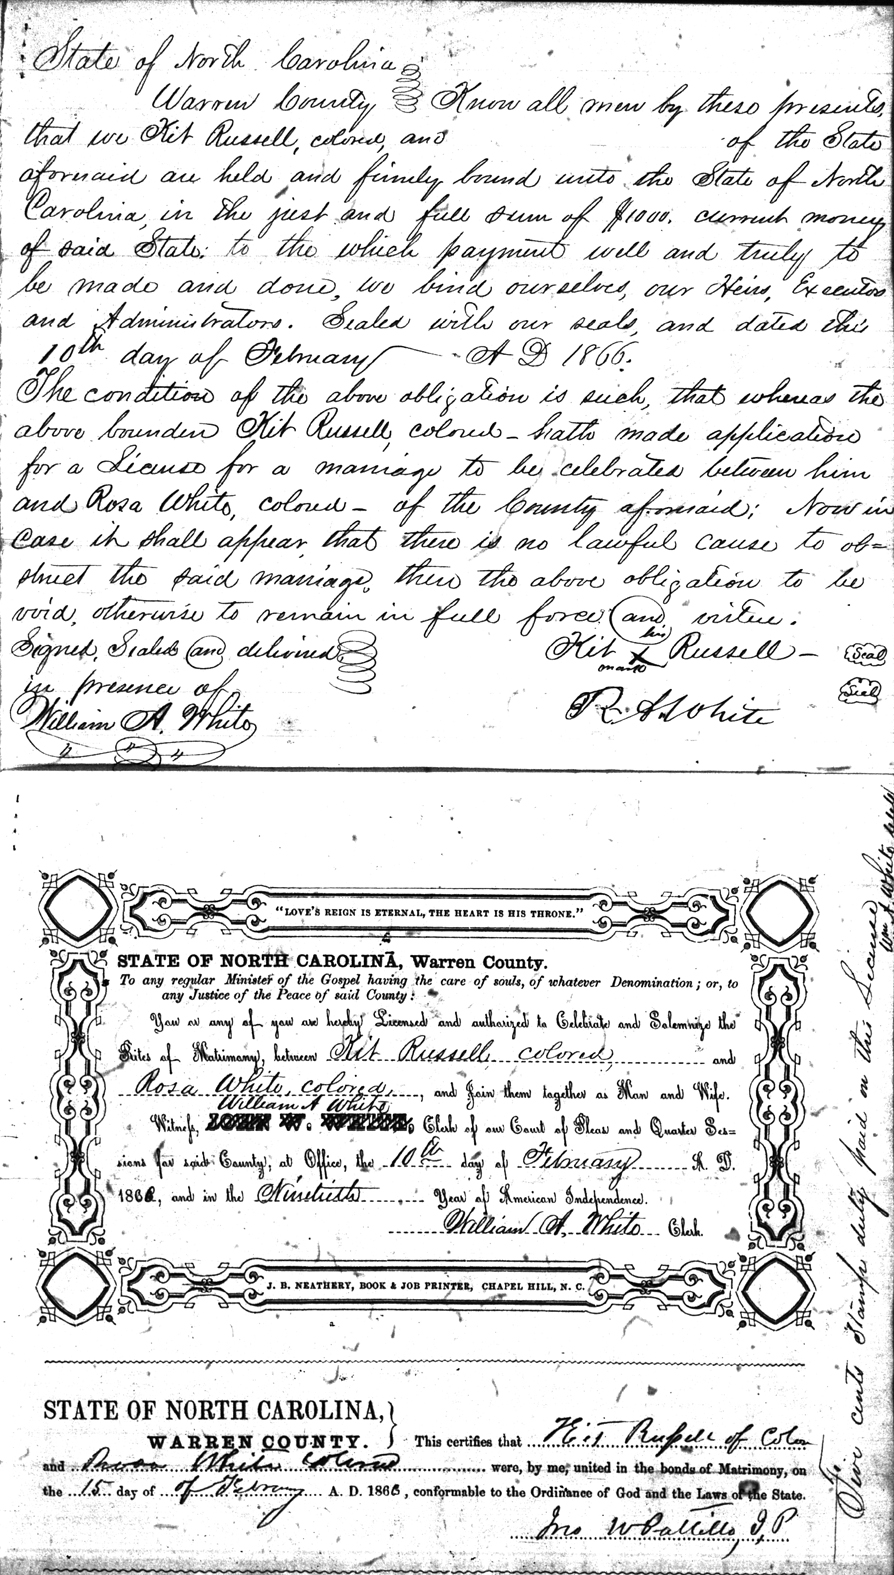 State of North Carolina
Warren County Know all men by these presents,
that we Kit Russell, colored, and of the State
aforesaid are held and firmly bound unto the State of North
Carolina, in the just and full sum of $1000. current money
of said State; to the which payment well and truly to
be made and done, we bind ourselves, our Heirs, Executors
and Administrators. Sealed with our seals, and dated this
10th day of February A D 1866.
The condition of the above obligation is such, that whereas the
above bounden Kit Russell, colored - hath made application
for a License for a marriage to be celebrated between him
and Rosa White, colored - of the County aforesaid; Now in
case it shall appear that there is no lawful cause to ob=
struct the said marriage, then the above obligation to be
void, otherwise to remain in full force and virtue.
Signed, Sealed and delivered
in presence of
William A. White
his
Kit X Russell - Seal
mark
R. A. White Seal
"LOVE'S REIGN IS ETERNAL, THE HEART IS HIS THRONE."
STATE OF NORTH CAROLINA, Warren County.
To any regular Minister of the Gospel having the care of souls, of whatever Denomination; or, to
any Justice of the Peace of said County:
You or any of you are hereby Licensed and authorized to Celebrate and Solemnize the
Rites of Matrimony, between Kit Russell, colored, and
Rosa White, colored, and Join them together as Man and Wife.
William A White
Witness, JOHN W. WHITE, Clerk of our Court of Pleas and Quarter Ses=
sions for said County, at Office, the 10th day of February A. D.
1866, and in the Ninetieth Year of American Independence.
William A. White Clerk.
J. B. NEATHERY, BOOK & JOB PRINTER, CHAPEL HILL, N. C.
STATE OF NORTH CAROLINA,
WARREN COUNTY. This certifies that Kit Russell of Colon
and White Colored were, by me, united in the bonds of Matrimony, on
the 15 day of of Febuary A. D. 1866, conformable to the Ordinance of God and the Laws of the State.
Jno W Pattillo, J. P
Five cents Stamp duty paid on this License
Wm A White, Clerk